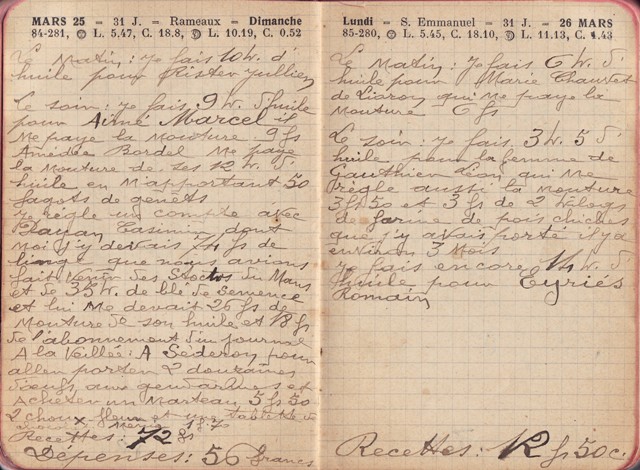 MARS 25 = 31 J. — Rameaux — Dimanche
84-281, L. 5.47, C. 18.8, L. 10.19, C. 0.52
Le Matin: Je fais 10 K. d'
huile pour Rister Jullien
Le soir: Je fais 9 K. d'huile
pour Aimé Marcel il
Me paye la Mouture 9 fs
Amédée Bordel Me paye
la Mouture de ses 12 K. d'
huile en M'apportant 50
fagots de genêts
Je règle un compte avec
Casimir dont
Moi j'y devais 74 fs de
linge que nous avions
fait venir des Stocks du Mans
et de 35 K. de blé de semence
et lui Me devait 26 fs de
Mouture de son huile et 18 fs
de l'abonnement du journal
A la Veillée: A Séderon pour
aller porter 2 douzaines
d'œufs aux gendarmes et
Acheter un Marteau 5 fs 50
2 choux fleur et une tablette de
1 f 70
Recettes: 72 fs
Dépenses: 56 francs
Lundi — S. Emmanuel — 31 J. = 26 MARS
85-280, L. 5.45, C. 18.10, L. 11.13, C. 1.43
Le Matin: Je fais 6 K. d'
huile pour Marie Chauvet
de qui Me paye la
Mouture 6 fs
Le soir: Je fais 3 K. 5 d'
huile pour la femme de
Gauthier Léon qui Me
règle aussi la Mouture
3 fs 50 et 3 fs de 2 kilogs
de farine de pois chiches
que j'y avais porté il y a
environ 3 Mois
Je fais encore 14 K. d'
huile pour Eyriés
Romain
Recettes: 12 fs 50 c.